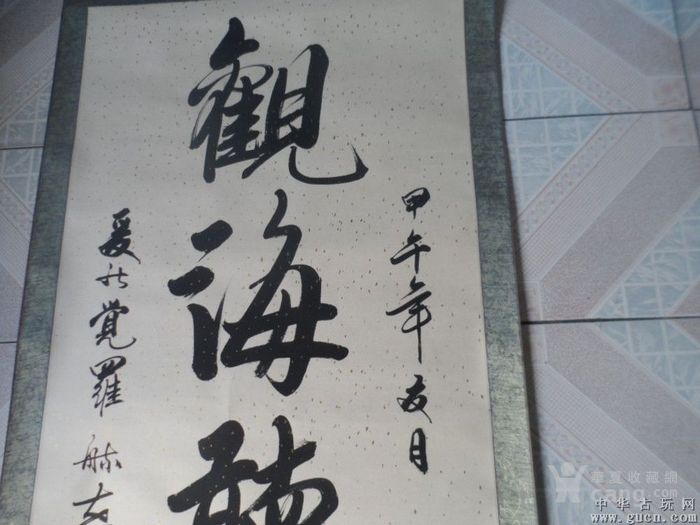 甲午年夏月
觀海聽
愛新覺羅 毓
華夏收藏網
中华古玩网
www.gucn.com